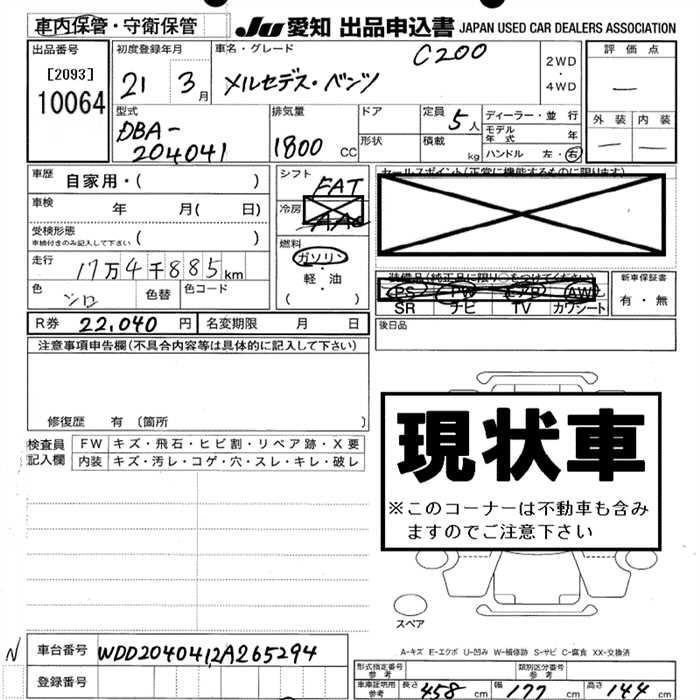 車内保管・守衛保管 JU愛知 出品申込書 JAPAN USED CAR DEALERS ASSOCIATION
出品番号 初度登録年月 車名・グレード C200 2WD・4WD 評価点
[2093]
10064 21 3月 メルセデス・ベンツ —
型式 排気量 ドア 定員 5人 ディーラー・並行 外装 内装
DBA-204041 1800CC 形状 積載 kg モデル年式 年 — —
ハンドル 左・右
車歴 自家用・( ) シフト FAT セールスポイント(正常に機能するものに限ります)
車検 年 月( 日) 冷房 AAC
受検形態 ( )
車検付きのみ記入して下さい
燃料 ガソリン・軽・油 ( )
走行 17万4千885km
色 シロ 色替 色コード
装備品(純正品に限り○をつけてください) 新車保証書
PS PW エアB AW 有・無
SR ナビ TV カワシート
R券 22,040円 名変期限 月 日 後日品
注意事項申告欄(不具合内容等は具体的に記入して下さい)
修復歴 有 (箇所 )
現状車
※このコーナーは不動車も含み
ますのでご注意下さい
検査員記入欄 FW キズ・飛石・ヒビ割・リペア跡・X要
内装 キズ・汚レ・コゲ・穴・スレ・キレ・破レ
スペア
A-キズ E-エクボ U-凹み W-補修跡 S-サビ C-腐食 XX-交換済
N 車台番号 WDD2040412A265294
登録番号
形式指定番号 参考 類別区分番号 参考
車庫証明用 参考 長さ 458cm 幅 177cm 高さ 144cm